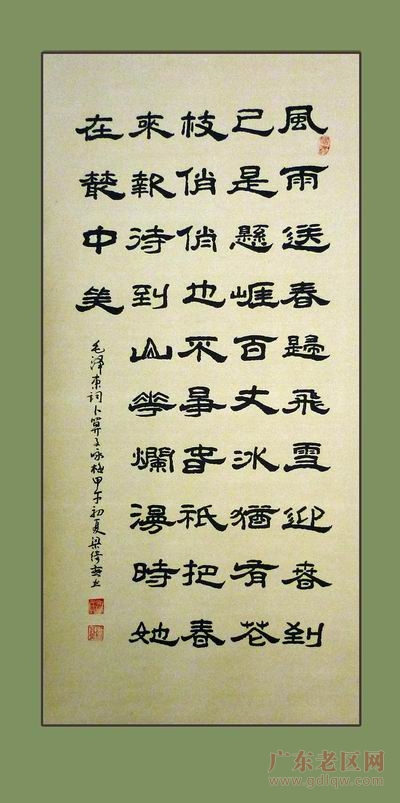 風雨送春歸飛雪迎春到
已是懸崖百丈冰猶有花
枝俏俏也不爭春祇把春
來報待到山華爛漫時她
在叢中笑
毛泽東詞卜算子咏梅甲午初夏梁
广东老区网
www.gdlqw.com